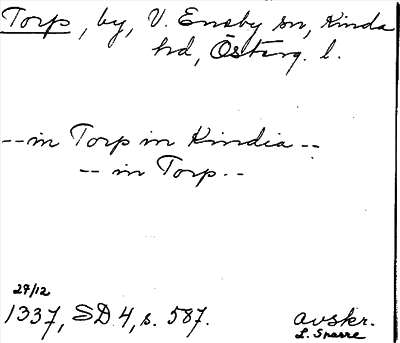 Torp, by, V. Eneby sn, Kinda
hd, Österg. l.
--in Torp in Kindia --
-- in Torp --
29/12
1337, SD 4, s. 587.
avskr.
L. Sparre